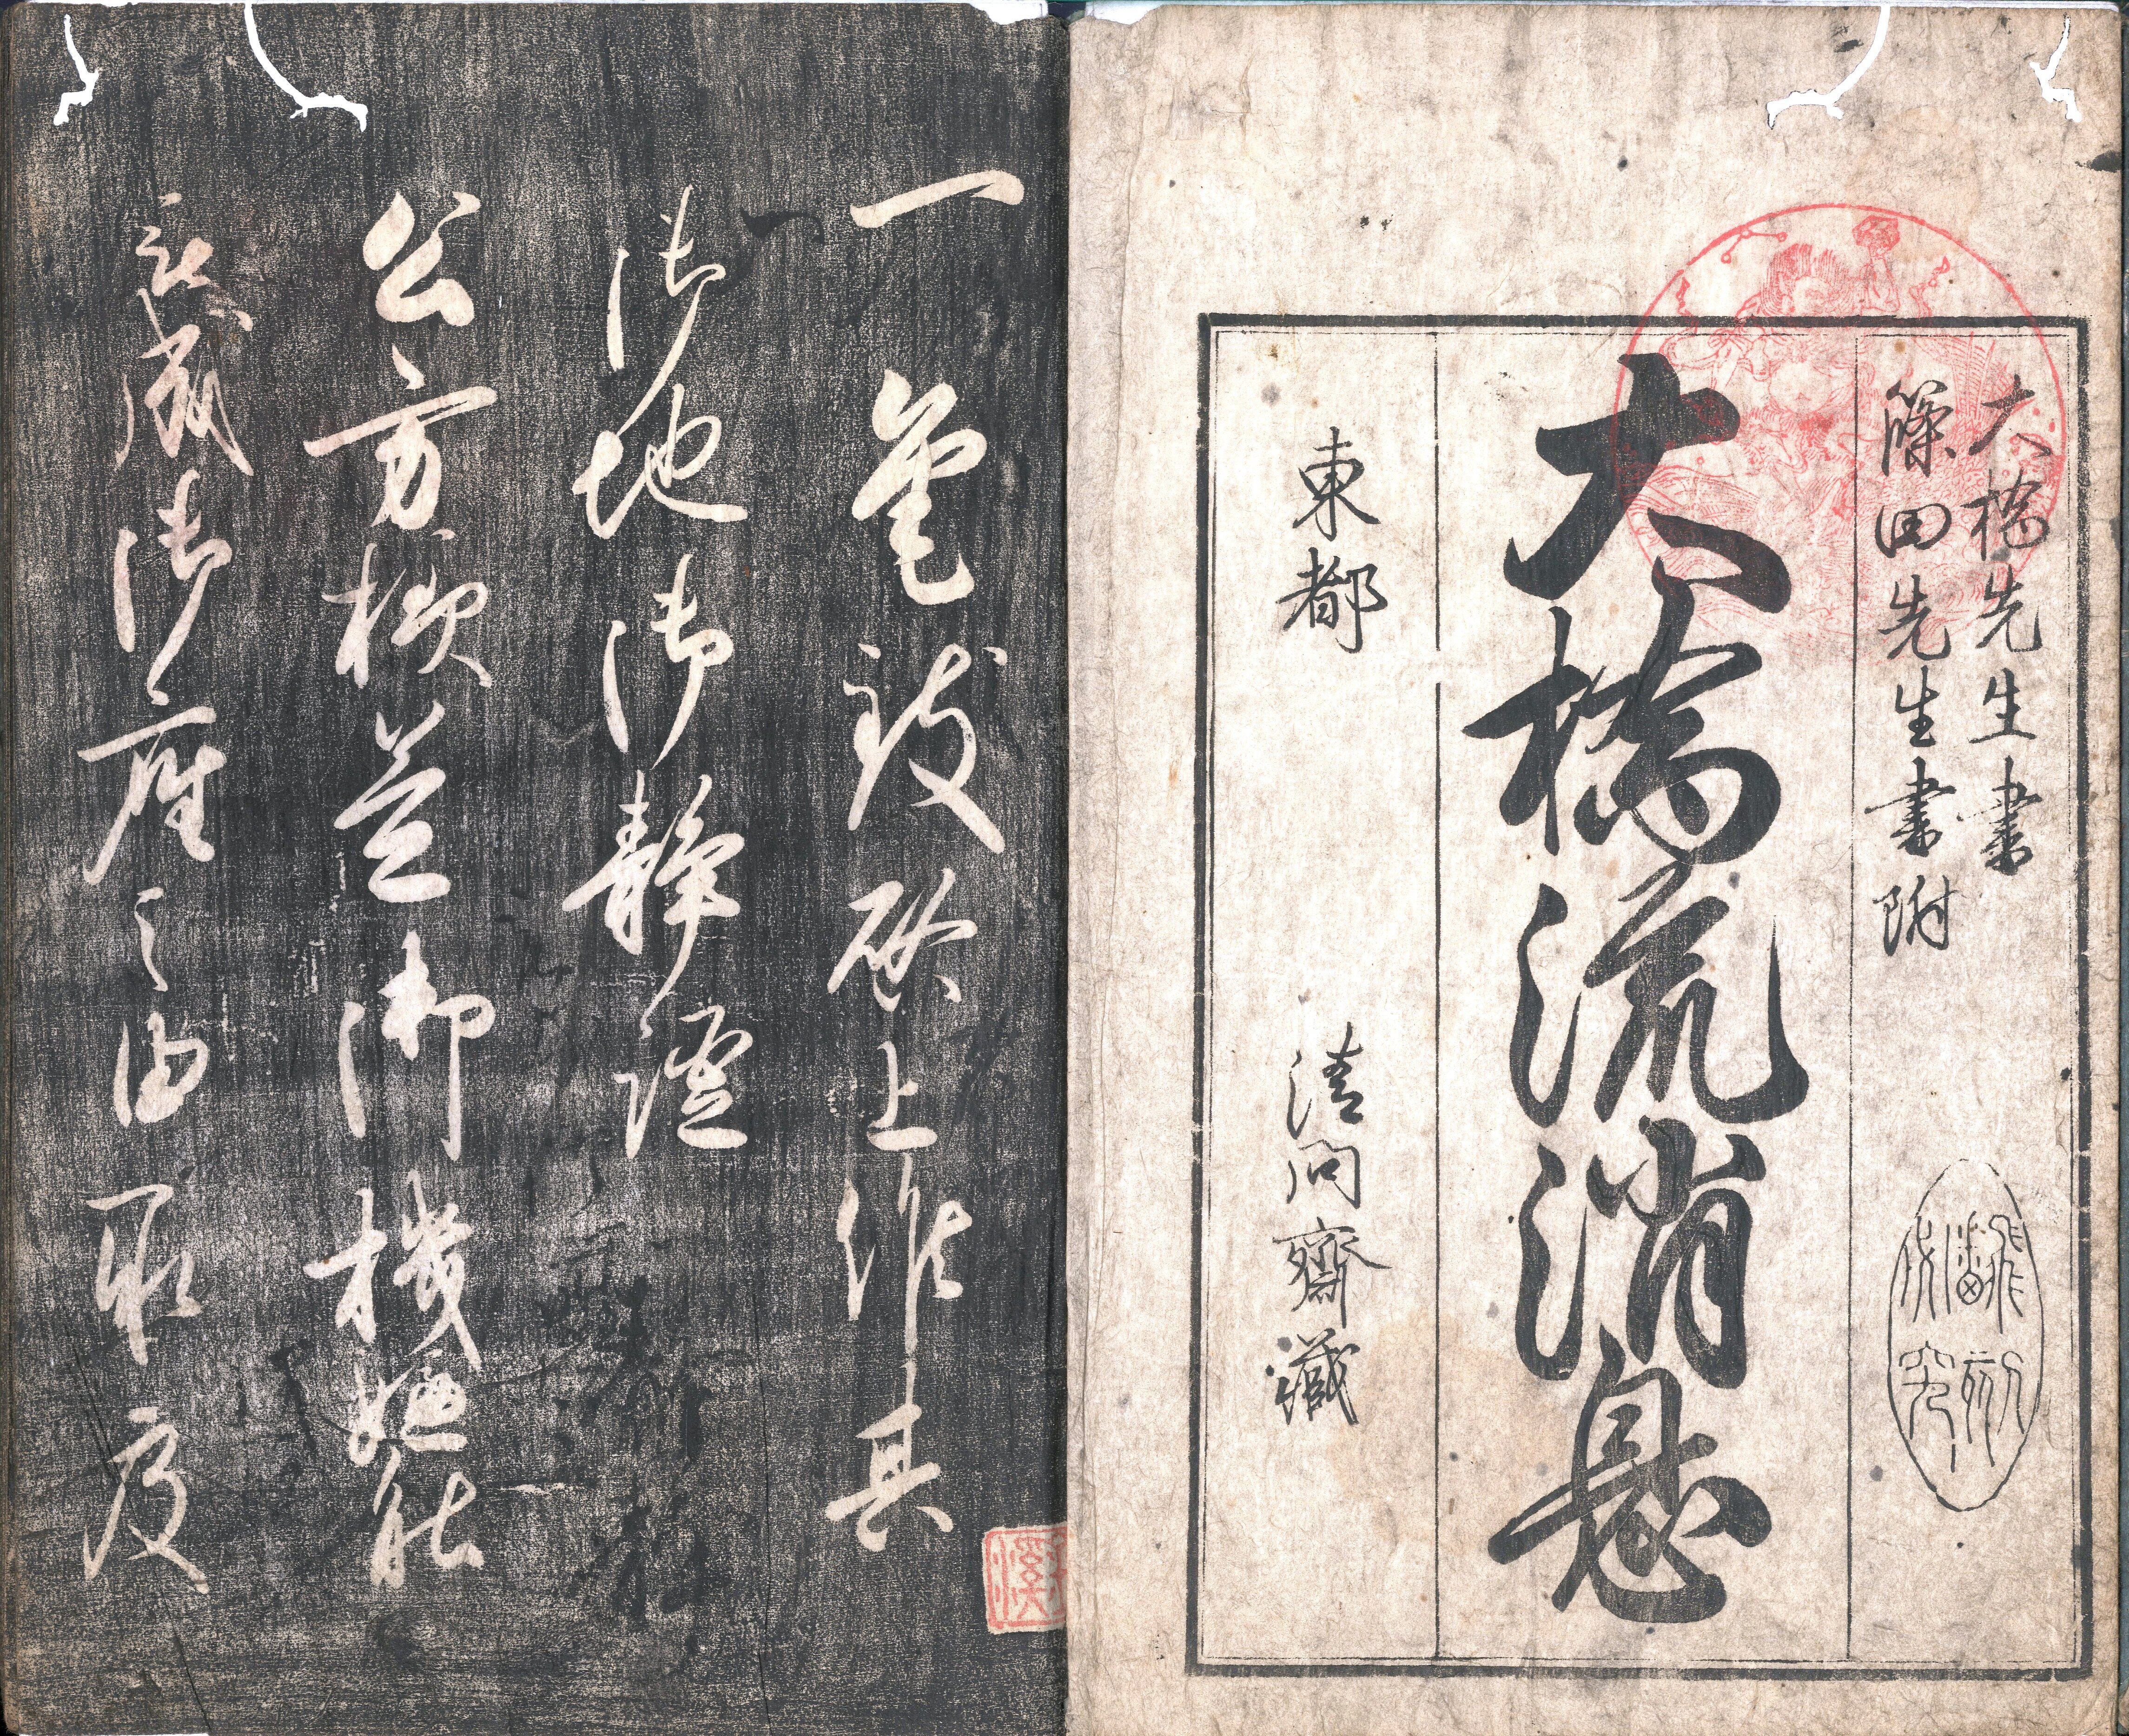 大橋先生書
篠田先生書附
飜刻
必究
大橋流消息
東都
清向齋藏
一筆致啓上候其
御地御静謐
公方様益御機嫌能
被成御座之由承度